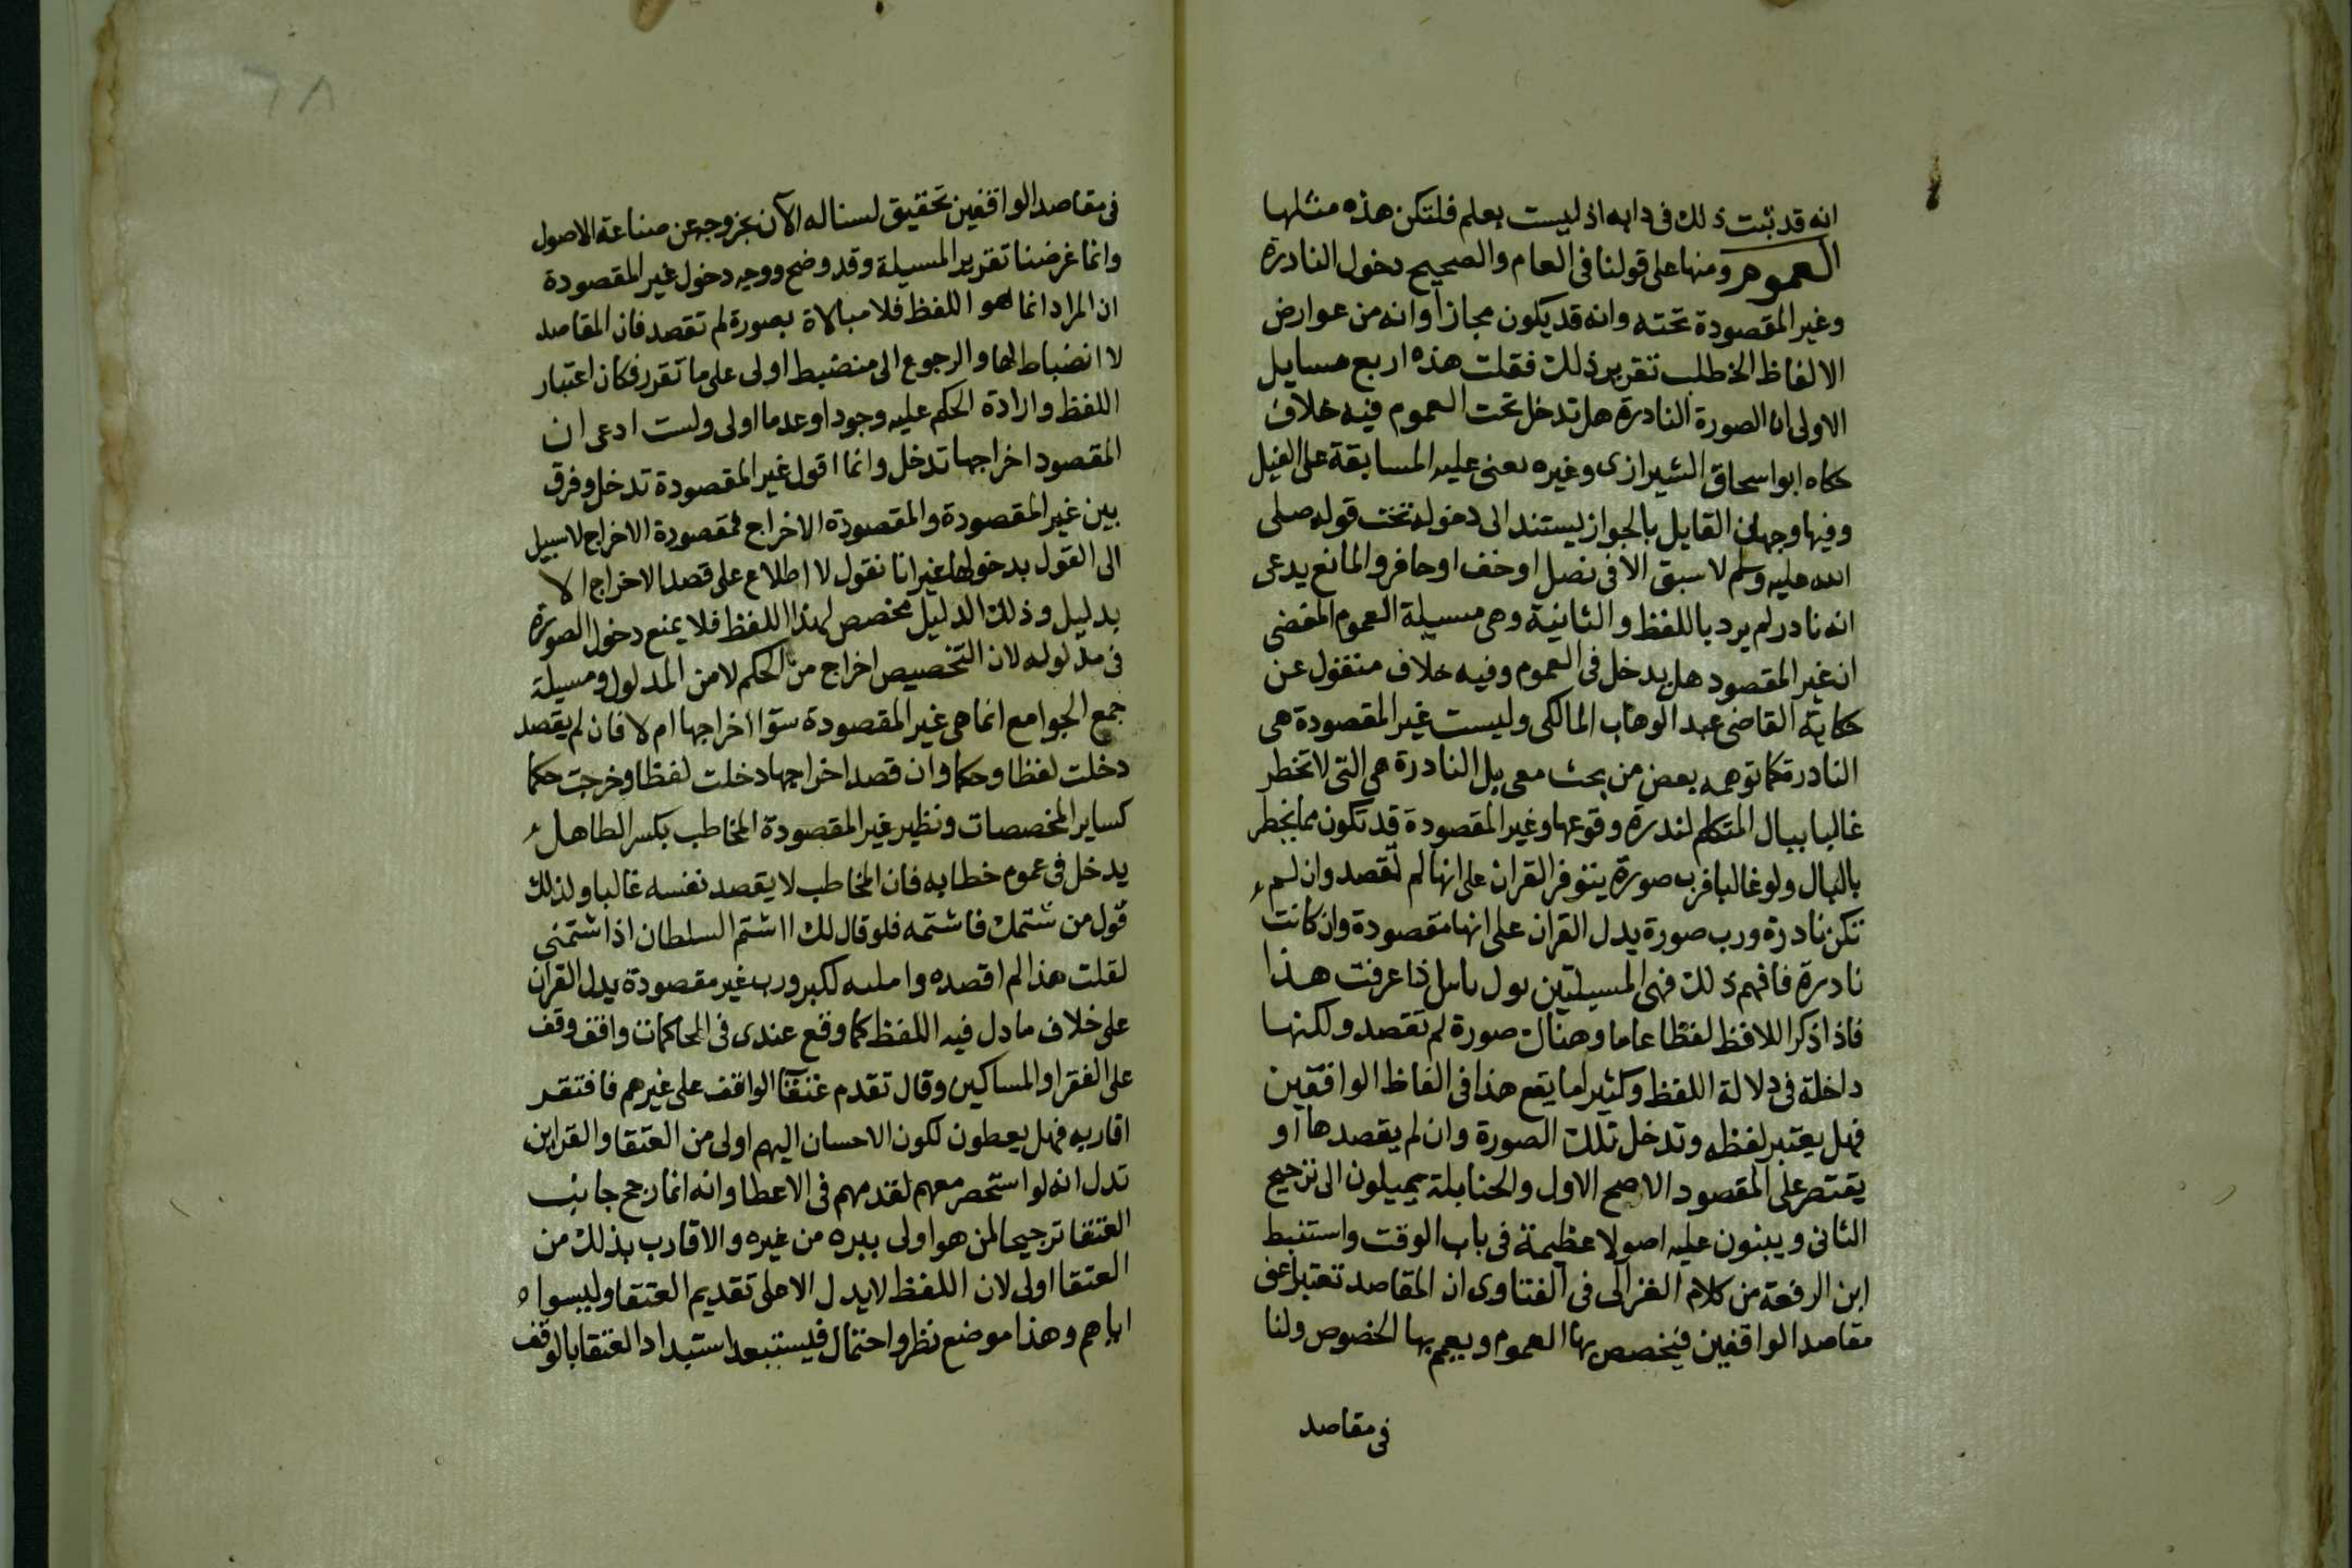 انه قد ثبت ذلك فى دابه اذ ليست بعلم فلتكن هذه مثلها
العموم ومنها على قولنا فى العام والصحيح دخول النادرة
وغير المقصودة تحته وانه قد يكون مجازا وانه من عوارض
الالفاظ الخ طلب تقرير ذلك فقلت هذه اربع مسايل
الاولى ان الصورة النادرة هل تدخل تحت العموم فيه خلاف
حكاه ابو اسحاق الشيرازى وغيره بعنى عليه المسابقة على الفيل
وفيها وجهان القايل بالجواز يستند الى دخوله تحت قوله صلى
الله عليه وسلم لا سبق الا فى نصل او خف او حافر والمانع يدعى
انه نادر لم يرد باللفظ والثانية وهى مسيلة العموم المقضى
ان غير المقصود هل يدخل فى العموم وفيه خلاف منقول عن
حكاية القاضى عبد الوهاب المالكى وليست غير المقصودة هى
النادرة كما توهمه بعض من بحث معى بل النادرة هى التى لا تخطر
غالبا ببال المتكلم لندرة وقوعها وغير المقصودة قد تكون مما يخطر
بالبال ولو غالبا فرب صورة يتوفر القران على انها لم تقصد وان لم
تكن نادرة ورب صورة يدل القران على انها مقصودة وان كانت
نادرة فافهم ذلك فهى المسيلتين اذا عرفت هذا
فاذا ذكر اللافظ لفظا عاما وهناك صورة لم تقصد ولكنها
داخلة فى دلالة اللفظ وكثيرا ما يقع هذا فى الفاظ الواقفين
فهل يعتبر لفظه وتدخل تلك الصورة وان لم يقصدها او
يقتصر على المقصود الاصح الاول والحنابلة يميلون الى ترجيح
الثانى ويبنون عليه اصولا عظيمة فى باب الوقف واستنبط
ابن الرفعة من كلام الغزالى فى الفتاوى ان المقاصد تعتبر اعنى
مقاصد الواقفين فيخصص بها العموم ويعم بها الخصوص ولنا
فى مقاصد
٦٨
فى مقاصد الواقفين تحقيق لسنا له الآن بخروجه عن صناعة الاصول
وانما غرضنا تقرير المسيلة وقد وضح ووجه دخول غير المقصودة
ان المراد انما هو اللفظ فلا مبالاة بصورة لم تقصد فان المقاصد
لا انضباط لها والرجوع الى منضبط اولى على ما تقرر فكان اعتبار
اللفظ وارادة الحكم عليه وجودا وعدما اولى ولست ادعى ان
المقصود اخراجها تدخل وانما اقول غير المقصودة تدخل وفرق
بين غير المقصودة والمقصودة الاخراج فمقصودة الاخراج لا سبيل
الى القول بدخولها غير انا نقول لا اطلاع على قصد الاخراج الا
بدليل وذلك الدليل مخصص لهذا اللفظ فلا يمنع دخول الصورة
فى مدلوله لان التخصيص اخراج من الحكم لا من المدلول ومسيلة
جمع الجوامع انما هى غير المقصودة سوا اخراجها ام لا فان لم يقصد
دخلت لفظا وحكما وان قصد اخراجها دخلت لفظا وخرجت حكما
كساير المخصصات ونظير غير المقصودة المخاطب بكسر الطا هل
يدخل فى عموم خطابه فان المخاطب لا يقصد نفسه غالبا ولذلك
قول من شتمك فاشتمه فلو قال لك ااشتم السلطان اذا شتمنى
لقلت هذا لم اقصده ورب غير مقصودة يدل القران
على خلاف ما دل فيه اللفظ كما وقع عندى فى المحاكمات واقف وقف
على الفقرا والمساكين وقال تقدم عتقا الواقف على غيرهم فافتقر
اقاربه فهل يعطون لكون الاحسان اليهم اولى من العتقا والقراين
تدل انه لو استحصر معهم لقدمهم فى الاعطا وانه انما رجح جانب
العتقا ترجيحا لمن هو اولى ببره من غيره والاقارب بذلك من
العتقا اولى لان اللفظ لا يدل الا على تقديم العتقا وليسوا
اياهم وهذا موضع نظر واحتمال فيستبعد استبداد العتقا بالوقف